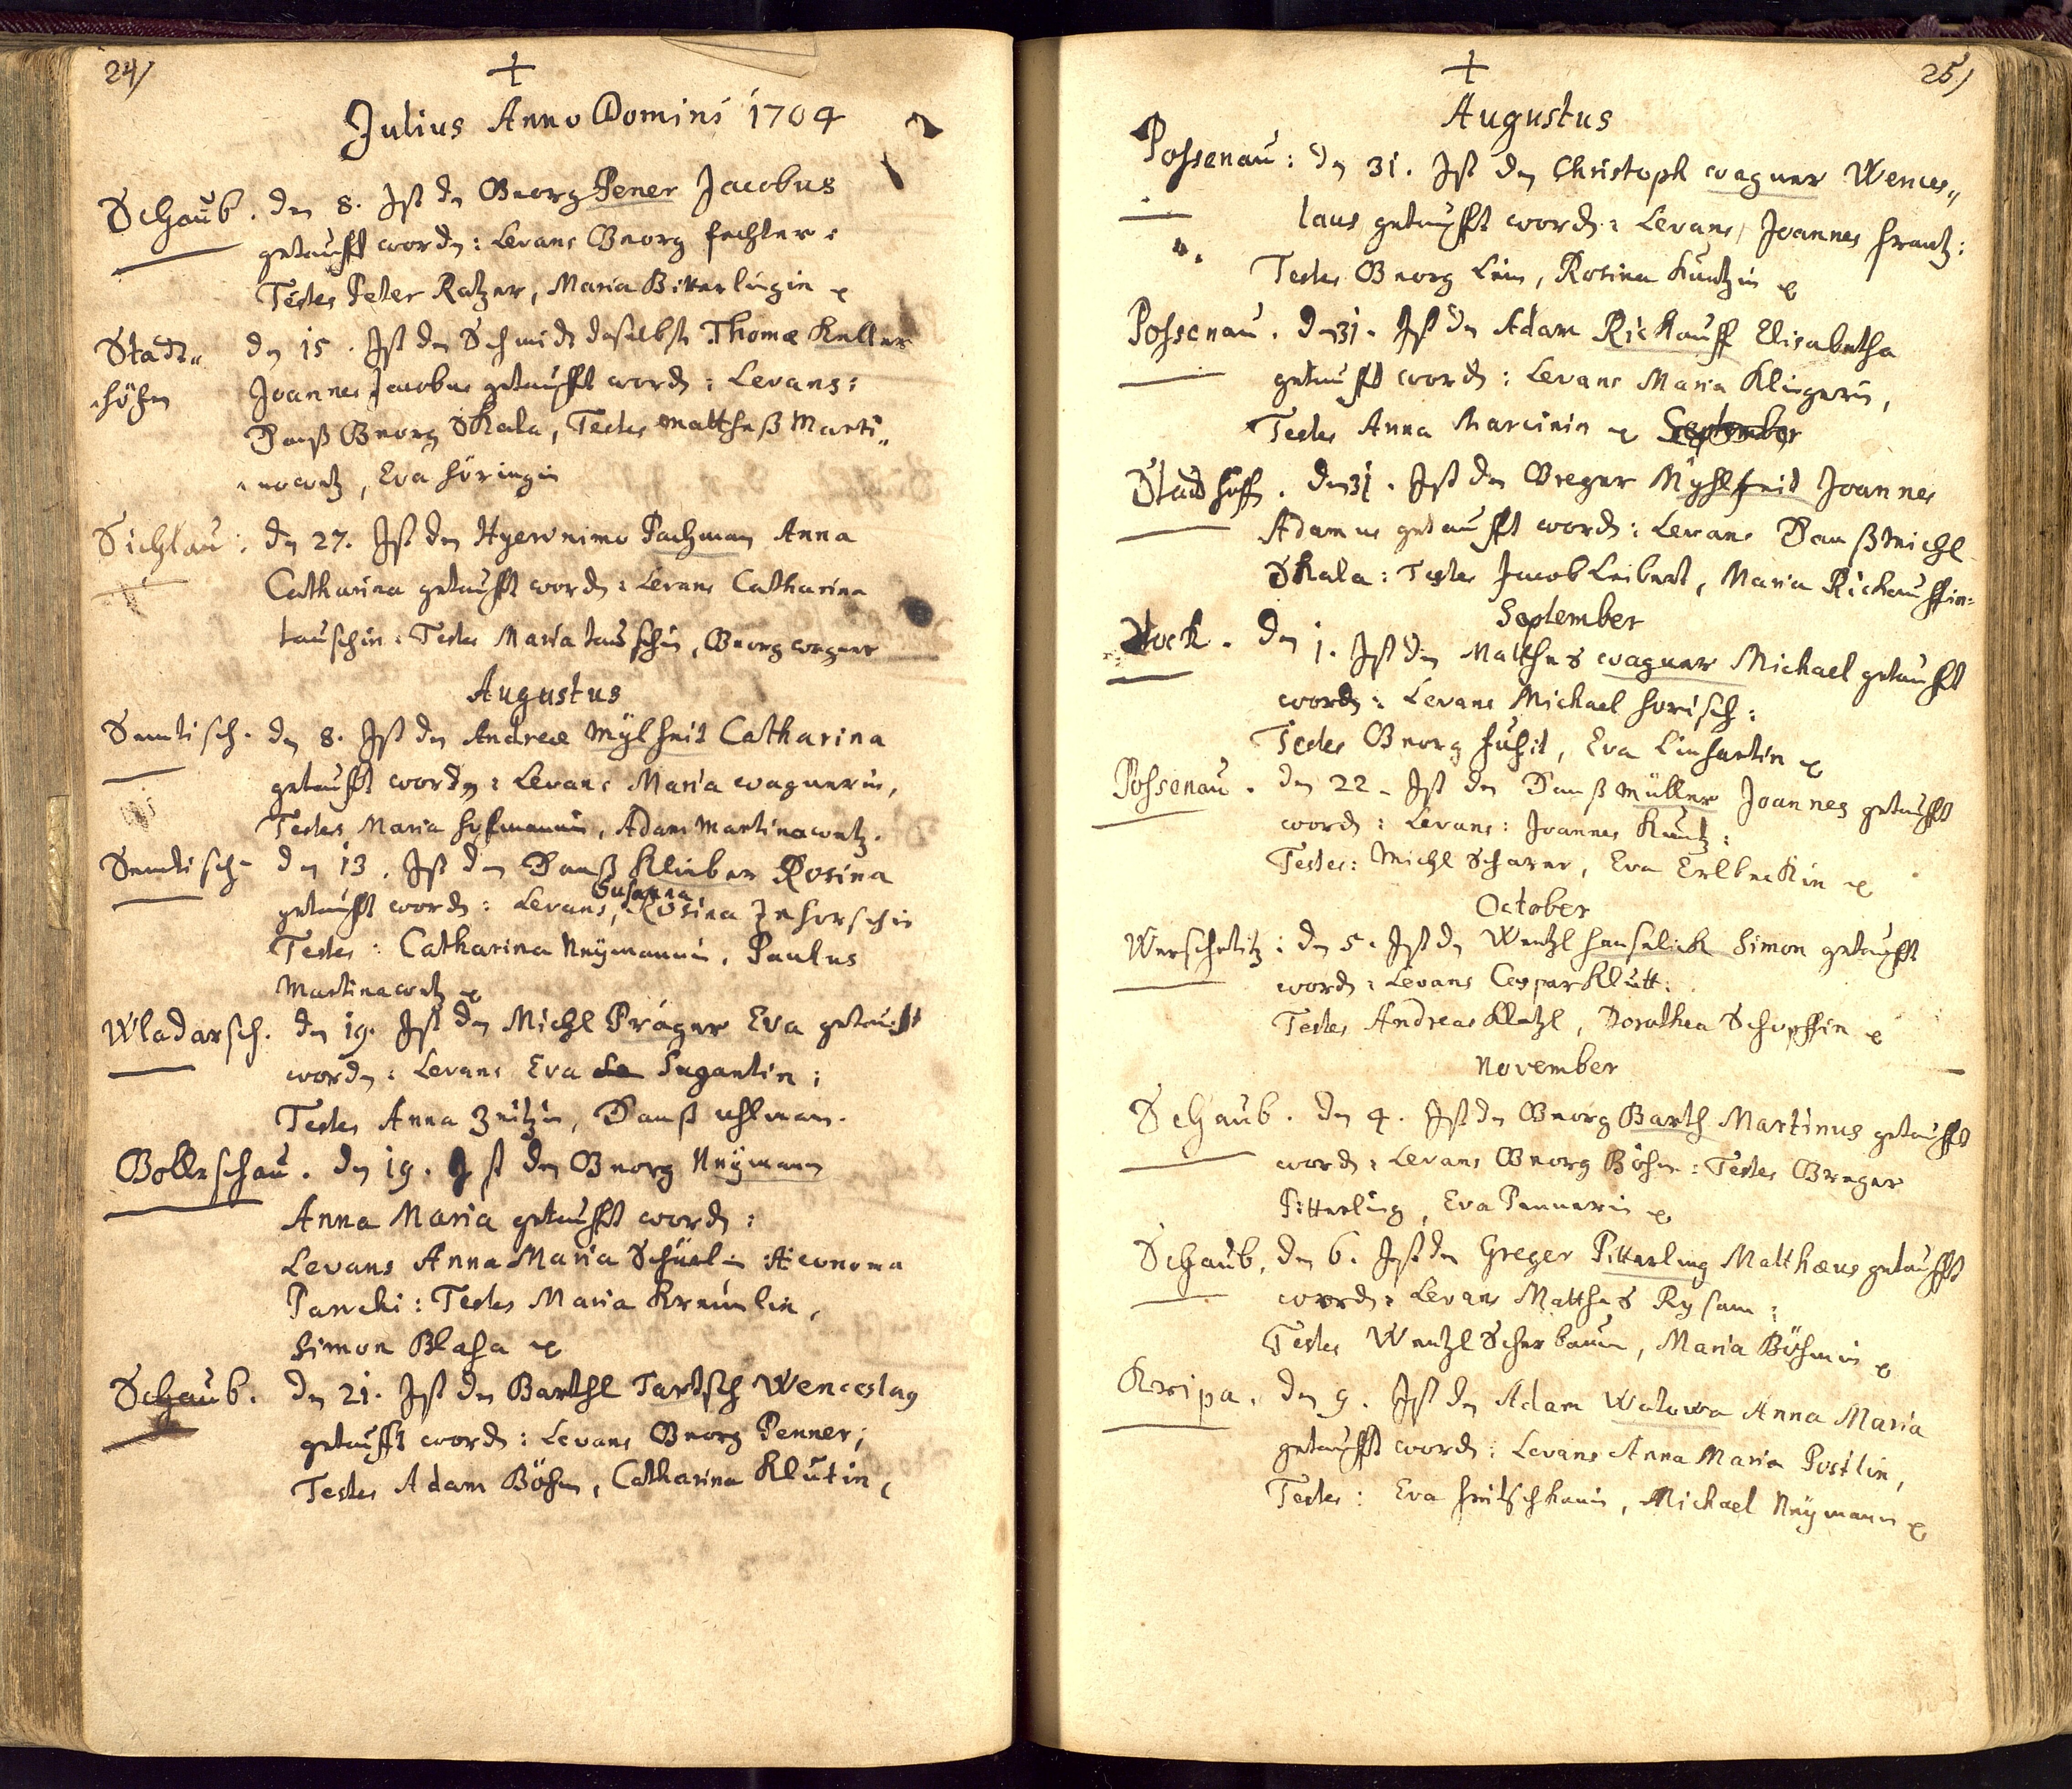 24/
Julius Anno Domini 1704
Schaub. den 8. Ist dn Georg Pener Jacobus
getaufft wordn: Levans Georg Fechter:
Testes Peter Ratzer, Maria Bitterlingin
Stadt„ dn 15. Ist dn Schmidt daselbst Thomæ Keller
höfen Joannes Jacobus getaufft wordn: Levans:
Hanß Georg Skala, Testes Mattheß Marti„
nowetz, Eva Höringin
Sichlau: dn 27. Ist dn Hyeronimo Pachman Anna
Catharina getaufft wordn: Levans Catharina
tauschin: Testes Maria tauschin, Georg wagner
Augustus
Semtisch. dn 8. Ist dn Andreæ Mylheit Catharina
getaufft wordn: Levans Maria wagnerin,
Testes Maria Hofmannin, Adam Martinowetz.
Semtisch dn 13. Ist dn Hanß Klieber Rosina
Susanna
getaufft wordn: Levans, Rosina Jehorschin
Testes: Catharina Neÿmannin, Paulus
Martinowetz
Wladarsch. dn 19. Ist dn Michl Prager Eva getaufft
wordn: Levans Eva Sugantin:
Testes Anna Zeitzin, Hanß Uhlman.
Golleschau. dn 19. Ist dn Georg Neÿmann
Anna Maria getaufft wordn:
Levans Anna Maria Schüelin Æconoma
Parochi: Testes Maria Kreinlin,
Simon Blaha
Schaub. dn 21. Ist dn Barthl Tartsch Wenceslaus
getaufft wordn: Levans Georg Penner;
Testes Adam Böhm, Catharina Klutin,
25/
Augustus
Possenau: dn 31. Ist dn Christoph wagner Wences„
laus getaufft wordn: Levans, Joannes Frantz:
Testes Georg Lein, Rosina Kuntzin
Possenau. dn 31. Ist dn Adam Rickauff Elisabetha
getaufft wordn: Levans Maria Klingerin,
Testes Anna Marcinin September
Stadhoffn. dn 31. Ist dn Greger Myhlheit Joannes
Adamus getaufft wordn: Levans Hanß Michl
Skala: Testes Jacob Leibert, Maria Rickauffin:
September
Stock. dn 1. Ist dn Matthes wagner Michael getaufft
wordn: Levans Michael Horisch:
Testes Georg Huhit, Eva Linhartin
Possenau. dn 22. Ist dn Hanß Müller Joannes getaufft
wordn: Levans: Joannes Kuntz:
Testes: Michl Scharer, Eva Erlbeckin
October
Werscheditz: dn 5. Ist dn Wentzl Hanselick Simon getaufft
wordn: Levans Caspar Klutt:
Testes Andreas Kletzl, Dorothea Schopffin
November
Schaub. dn 4. Ist dn Georg Barth Martinus getaufft
wordn: Levans Georg Böhm: Testes Greger
Pitterling, Eva Pennerin
Schaub, dn 6. Ist dn Greger Pitterling Matthæus getaufft
wordn: Levans Matthes Rysam:
Testes Wentzl Scherbaum, Maria Böhmin
Kripa. dn 9. Ist dn Adam Watowa Anna Maria
getaufft wordn: Levans Anna Maria Postlin,
Testes: Eva Heitschkanin, Michael Neÿmann